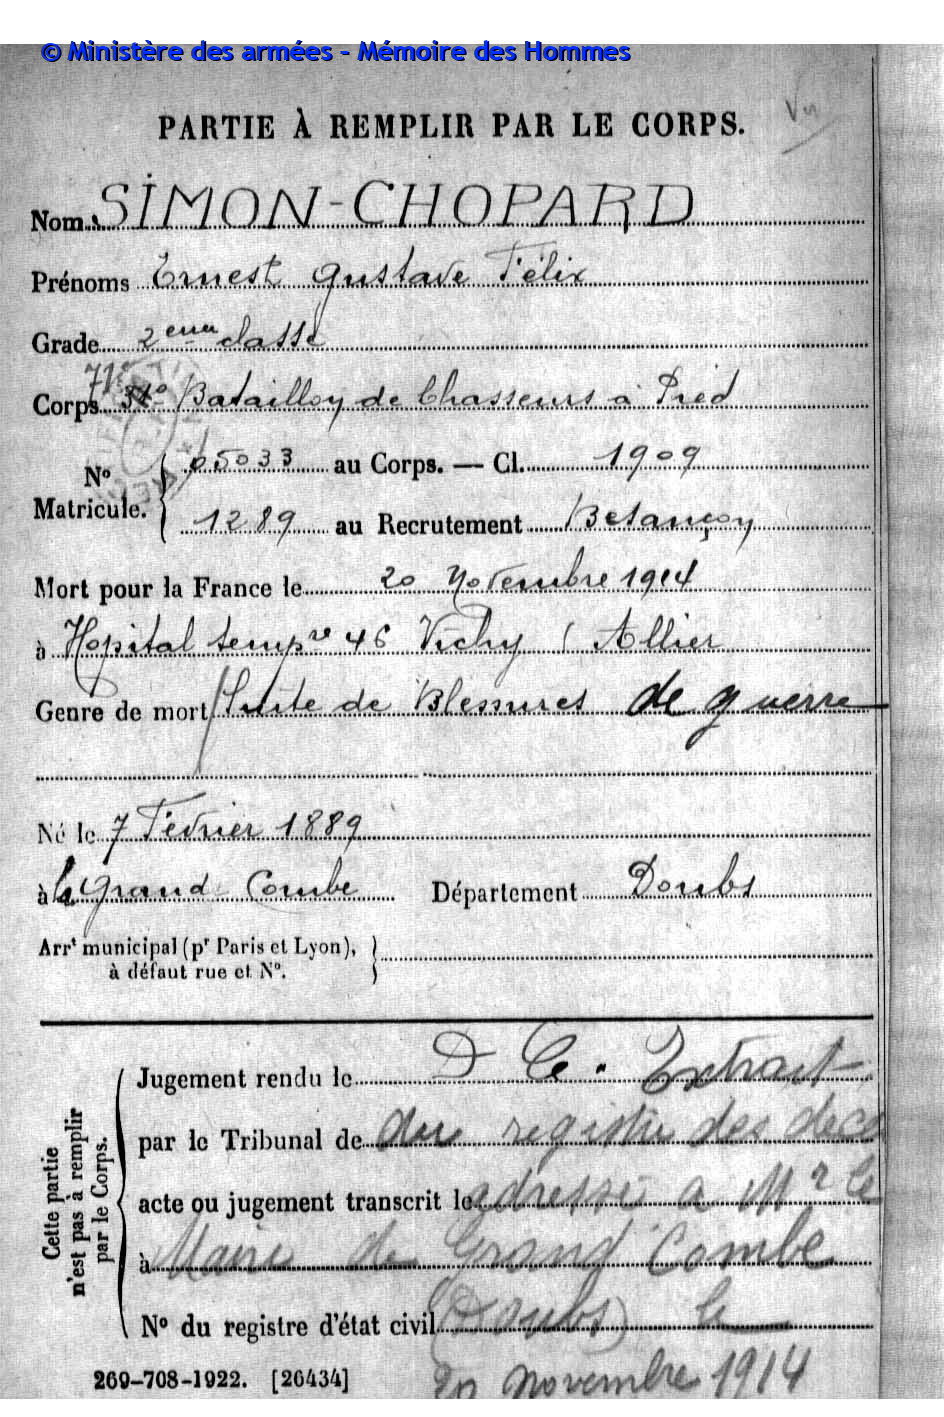 © Ministère des armées - Mémoire des Hommes
Vu
PARTIE À REMPLIR PAR LE CORPS.
Nom SIMON-CHOPARD
Prénoms Ernest Gustave Félix
Grade 2eme classe
71e
Corps Bataillon de Chasseurs à Pied
No Matricule. 05033 au Corps. — Cl. 1909
1289 au Recrutement Besançon
Mort pour la France le 20 Novembre 1914
à Hopital tempre 46 Vichy (Allier
Genre de mort Suite de Blessures de guerre
Né le 7 Février 1889
à la Grand Combe Département Doubs
Arrt municipal (pr Paris et Lyon),
à défaut rue et No.
Cette partie
n'est pas à remplir
par le Corps.
Jugement rendu le D Ce. Extrait
par le Tribunal de du registre des deces
acte ou jugement transcrit le adressé a Mr le
à Maire de Grand Combe
No du registre d'état civil (Doubs) le
269-708-1922. [26434] 20 novembre 1914